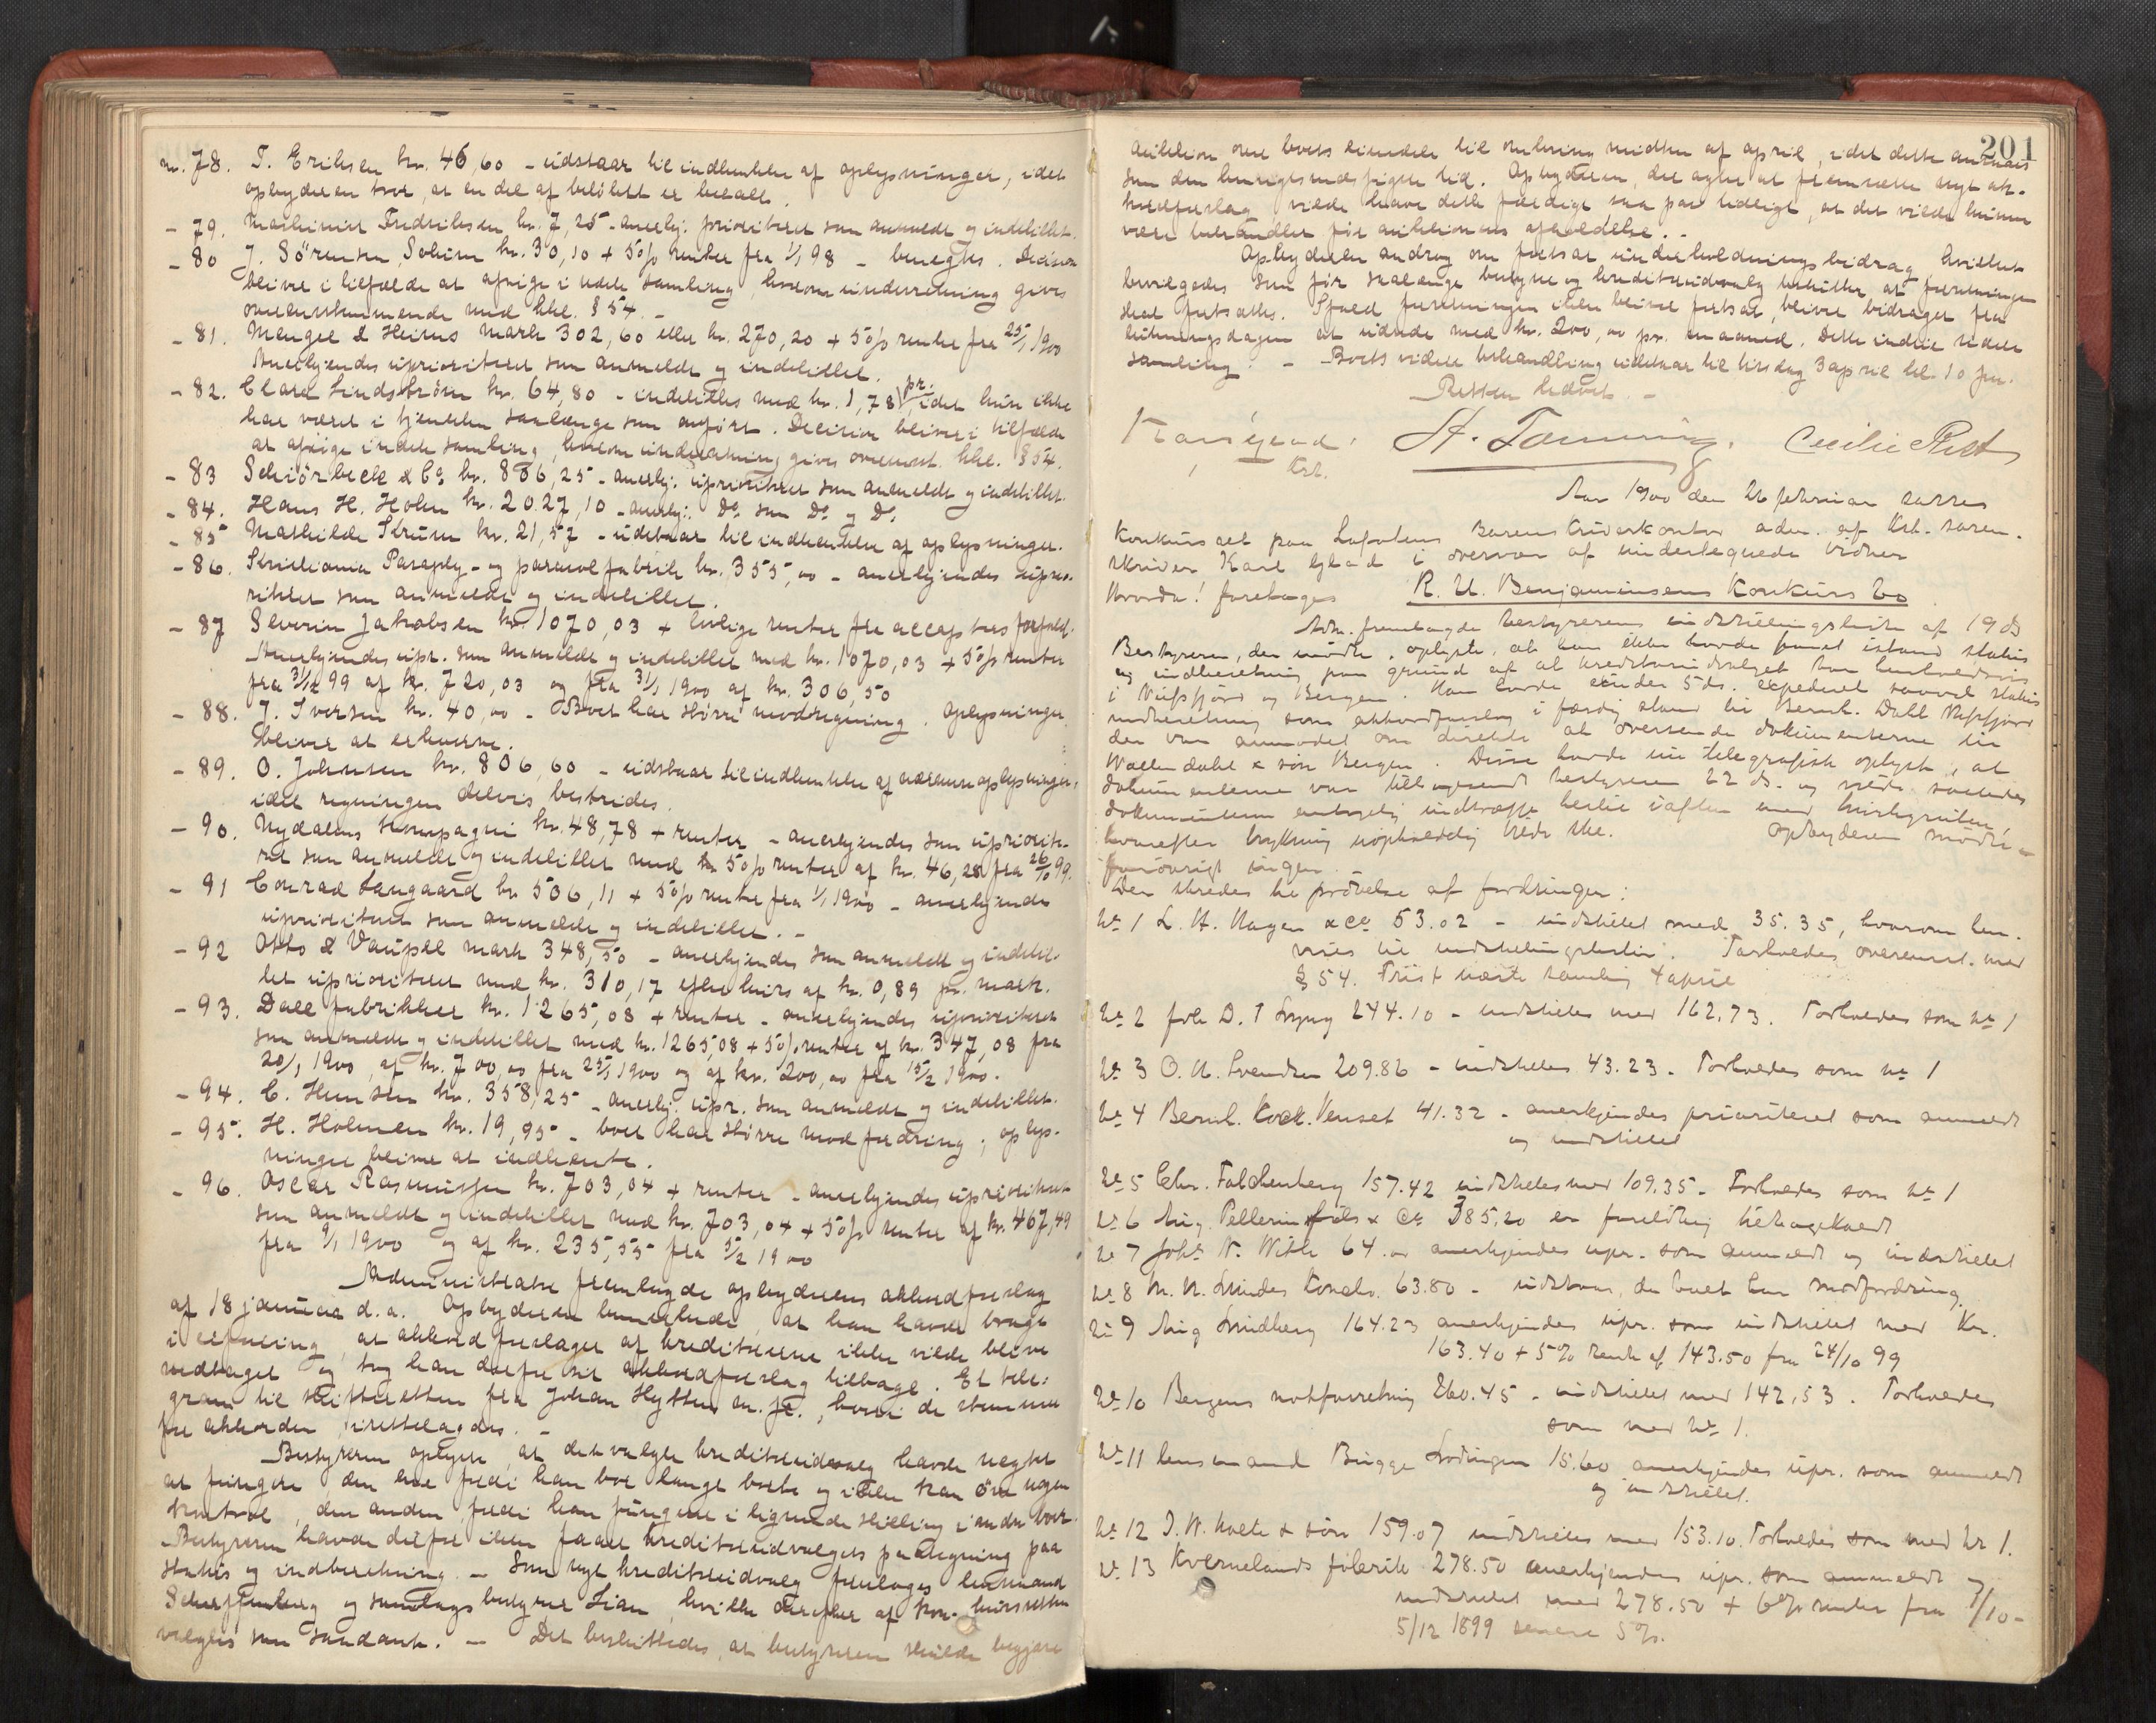 nr. 78. T. Eriksen kr. 46,60 - udstaar til indhentelse af oplysninger, idet
opbyderen tror, at en del af beløbet er betalt.
- 79. Fredriksen kr. 7,25 - anerkj. prioriteret som anmeldt og indstillet.
- 80 J. Sörensen, Solum kr. 30,10 + 5% renter fra 1/1 98 - benegtes. Decision
bliver i tilfælde at afsige i næste samling, hvorom underretning gives
overensstemmende med kkl. § 54. -
- 81. Mengel & Heims mark 302,60 eller kr. 270,20 + 5% renter fra 25/1 1900
Anerkjendes uprioriteret som anmeldt og indstillet.
- 82. Clara Lindström kr. 64,80 - indstilles med kr. 1,78 pr. idet hun ikke
har været i tjenesten saalænge som anført. Decision bliver i tilfælde
at afsige i næste samling, hvorom underretning gives overenst. kkl. § 54.
- 83 Schiörbeck & Co kr. 886,25 - anerkj. uprioriteret som anmeldt og indstillet.
- 84. Hans H. Holm kr. 2027,10 - anerkj. Do som Do og Do.
- 85 Mathilde Strüm kr. 21,57 - udstaar til indhentelse af oplysninger.
- 86. Kristiania Paraply- og parasolfabrik kr. 355,00 - anerkjendes uprio-
riteret som anmeldt og indstillet.
- 87 Severin Jakobsen kr. 1070,03 + lovlige renter fra accepters forfald.
Anerkjendes upr. som anmeldt og indstillet med kr. 1070,03 + 5% renter
fra 31/12 99 af kr. 720,03 og fra 31/1 1900 af kr. 306,50
- 88. J. Iversen kr. 40,00 - Boet har större modregning. Oplysninger
bliver at erhverve.
- 89. O. Johnsen kr. 806,60 - udstaar til indhentelse af nærmere oplysninger,
idet regningen delvis bestrides.
- 90. Nydalens kompagni kr. 48,78 + renter - anerkjendes som upriorite-
ret som anmeldt og indstillet med 5% renter af kr. 46,28 fra 26/10 99.
- 91 Conrad Langaard kr. 506,11 + 5% renter fra 1/1 1900 - anerkjendes
uprioriteret som anmeldt og indstillet. -
- 92 Otto & Vaupel mark 348,50 - anerkjendes som anmeldt og indstil-
let uprioriteret med kr. 310,17 efter kurs af kr. 0,89 pr. mark.
- 93. Dale fabrikker kr. 1265,08 + renter - anerkjendes uprioriteret
som anmeldt og indstillet med kr. 1265,08 + 5% renter af kr. 347,08 fra
20/1 1900, af kr. 700,00 fra 25/1 1900 og af kr. 200,00 fra 15/2 1900.
- 94. C. Hansen kr. 358,25 - anerkj. upr. som anmeldt og indstillet.
- 95. H. Holmen kr. 19,95 - boet har större modfordring; oplys-
ninger bliver at indhente.
- 96. Oscar Rasmussen kr. 703,04 + renter - anerkjendes uprioriteret
som anmeldt og indstillet med kr. 703,04 + 5% renter af kr. 467,49
fra 9/1 1900 og af kr. 235,55 fra 5/2 1900
Administrator fremlagde opbyderens akkordforslag
af 18 januar d.a. Opbyderen bemærkede, at han havde bragt
i erfaring, at akkordforslaget af kreditorerne ikke vilde blive
vedtaget og tog han derfor sit akkordforslag tilbage. Et tele-
gram til skifteretten fra Johan Hytten m. fl., hvori de stemme
for akkorden, irettelagdes. -
Bestyreren oplyste, at det valgte kreditorudvalg havde negtet
at fungere den ene fordi han bor langt borte og ikke kan öve nogen
kontrol, den anden, fordi han fungerer i lignende stilling i andre boer.
Bestyreren havde derfor ikke faaet kreditorudvalgets paategning paa
status og indberetning. - Som nyt kreditorudvalg foresloges lensmand
Scharffenberg og samlagsbestyrer Lian, hvilke derefter af konkursretten
valgtes som saadant. - Det besluttedes, at bestyreren skulde begjære
201
auktion over boets eiendele til omkring midten af april, idet dette antages
som den hensigtsmæssigste tid. Opbyderen, der agter at fremsætte nyt ak-
kordforslag vilde have dette færdigt saa par tidligt, at det vilde kunne
være behandlet för auktionens afholdelse. -
Opbyderen androg om fortsat underholdningsbidrag, hvilket
bevilgedes som för saalænge bestyrer og kreditorudvalg beslutter at forretningen
skal fortsættes. Ifald forretningen ikke bliver fortsat, bliver bidraget fra
lukningsdagen at udrede med kr. 200,00 pr. maaned. Dette indtil næste
samling. - Boets videre behandling udstaar til tirsdag 3 april kl. 10 fm.
Retten hævet. -
Karl Glad. St. Tømming. Cecilie Rist
kst.
Aar 1900 den 26 februar sattes
konkursret paa Lofotens Sorenskriverkontor adm. af kst. soren-
skriver Karl Glad i overvær af undertegnede vidner
Hvorda! foretages R. U. Benjaminsens Konkurs bo
Adm. fremlagde bestyrerens indstillingsliste af 19 ds
Bestyreren, der mödte, oplyste, at han ikke havde faaet istand status
og indberetning paa grund af at kreditorudvalget bor henholdsvis
i Nusfjord og Bergen. Han havde under 5 ds. expederet saavel status
indberetning som akkordforslag i færdig stand til Bernt. Dahl Nusfjord
der var anmodet om direkte at oversende dokumenterne til
Wallendahl & sön Bergen. Disse havde nu telegrafisk oplyst, at
dokumenterne var tilbagesendt bestyreren 22 ds. og vilde saaledes
dokumenterne antagelig indtræffe hertil iaften med hurtigruten,
hvorefter trykning uopholdelig vilde ske. Opbyderen mödte -
forövrigt ingen.
Der skredes til prövelse af fordringer:
No 1 L. H. Hagen & Co 53.02 - indstillet med 35.35, hvorom hen-
vises til indstillingslisten. Forholdes overenst. med
§ 54. Frist næste samling 4 april
No 2 244.10 - indstilles med 162,73. Forholdes som No 1
No 3 O. A. Svendsen 209.86 - indstilles 43.23. Forholdes som No 1
No 4 Bernh. Kock. Venset 41.32 - anerkjendes prioriteret som anmeldt
og indstillet
No 5 Chr. Falchenberg 157.42 indstilles med 109.35. Forholdes som No 1
No 6 Aug. Pellerin fils & Co 385,20 er foreløbig tilbagekaldt
No 7 Johs N. With 64.00 anerkjendes upr. som anmeldt og indstillet
No 8 63.80 - udstaar, da boet har modfordring.
No 9 Aug Lindberg 164.23 anerkjendes upr. som indstillet med Kr.
163.40 + 5% rente af 143.50 fra 24/10 99
No 10 Bergens notforretning 260.45 - indstillet med 142,53. Forholdes
som med No 1.
No 11 lensmand Brügge Lödingen 15.60 anerkjendes upr. som anmeldt
og indstillet.
No 12 J. W. Holte & sön 159.07 indstilles med 153.10. Forholdes som med No 1.
No 13 Kvernelands fabrik 278.50 anerkjendes upr. som anmeldt og
indstillet med 278.50 + 6% renter fra 1/10 -
5/12 1899 senere 5%.